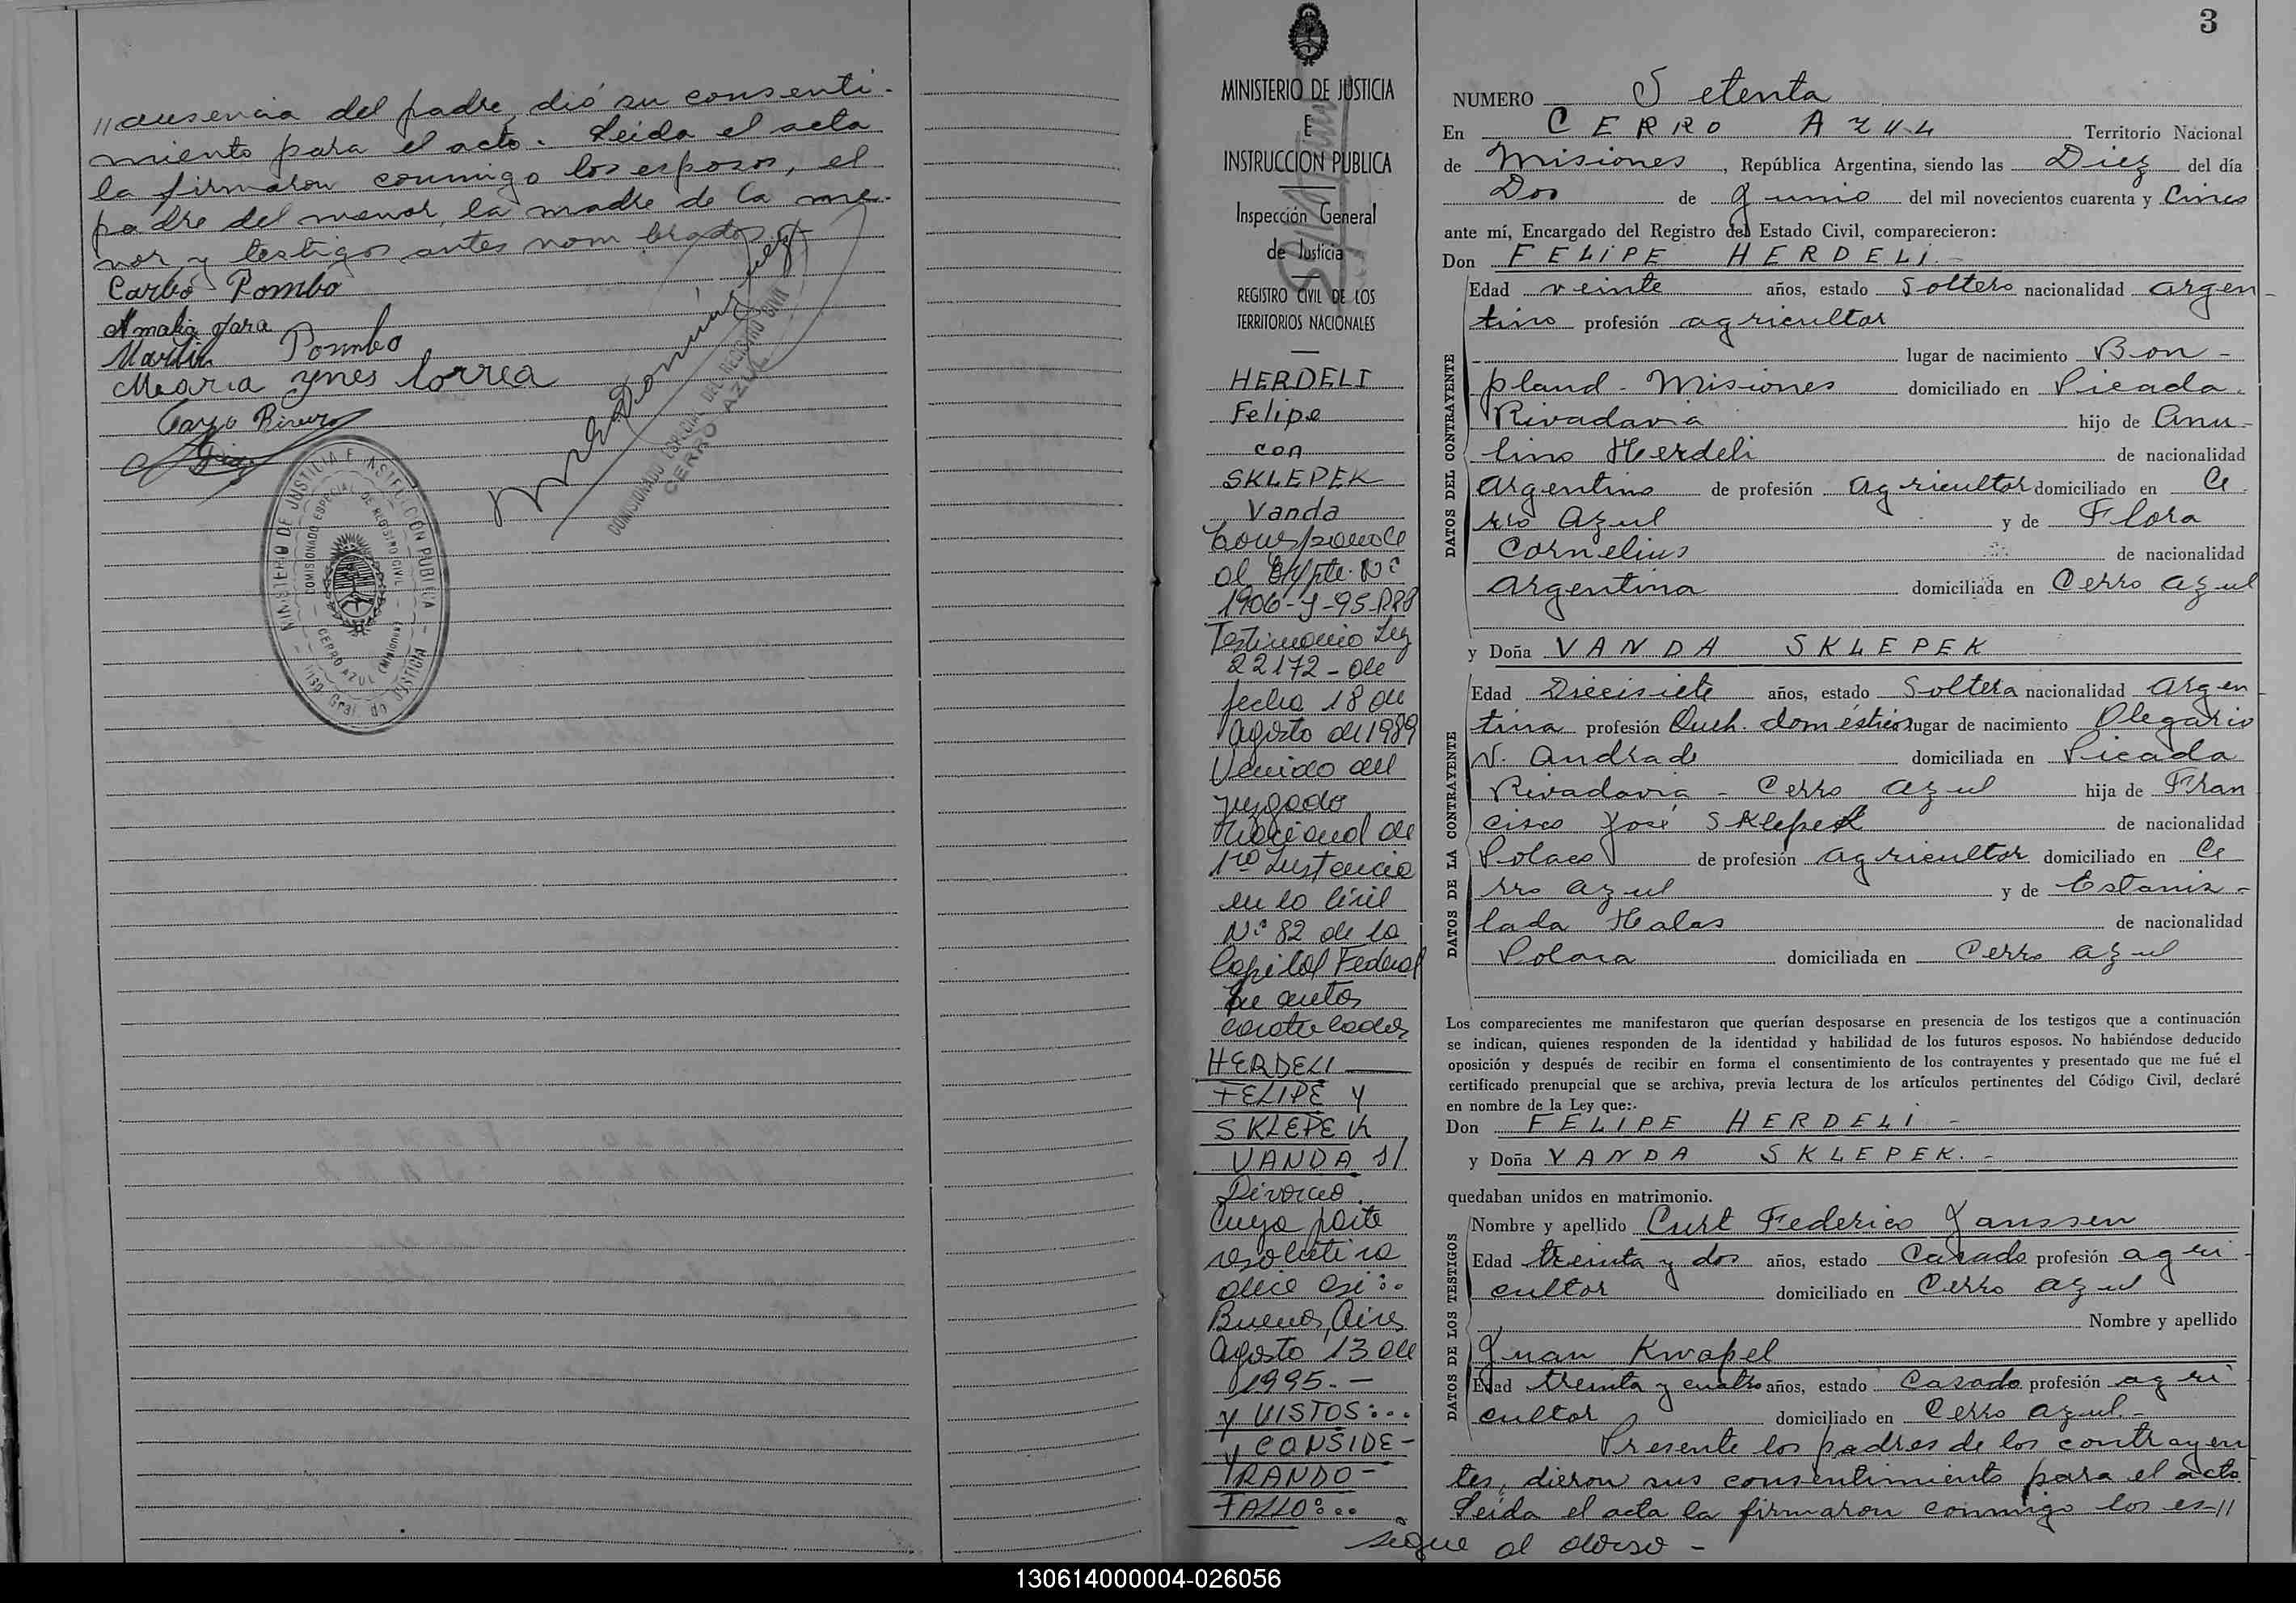 //ausencia del padre, dió su consenti-
miento para el acto. Leida el acta
la firmaron conmigo los esposos, el
padre del menor, la madre de la me-
nor y testigos antes nombrados.
Carlos Pombo
Amalia Jara
Martin Pombo
Maria Ynes Correa
MINISTERIO DE JUSTICIA E INSTRUCCIÓN PUBLICA
COMISIONADO ESPECIAL DE REGISTRO CIVIL
CERRO AZUL (Misiones)
Insp. Gral de Justicia
COMISIONADO ESPECIAL DEL REGISTRO CIVIL
CERRO AZUL
MINISTERIO DE JUSTICIA
E
INSTRUCCION PUBLICA
Inspección General
de Justicia
REGISTRO CIVIL DE LOS
TERRITORIOS NACIONALES
HERDELI
Felipe
con
SKLEPEK
Vanda
Corresponde
al Expte. Nº
1906-J-95-
Testimonio Ley
22172 - de
fecha 18 de
Agosto de 1989
Venido del
juzgado
Nacional de
1ra Instancia
en lo Civil
Nº 82 de la
Capital Federal
En autos
caratulados
HERDELI
FELIPE Y
SKLEPEK
VANDA S/
Divorcio.
Cuya parte
resolutiva
dice así:.
Buenos Aires
Agosto 13 de
1995.-
Y VISTOS:...
Y CONSIDE-
RANDO-
FALLO:..
sigue al dorso -
3
NUMERO Setenta
En CERRO AZUL Territorio Nacional
de Misiones, República Argentina, siendo las Diez del día
Dos de Junio del mil novecientos cuarenta y Cinco
ante mí, Encargado del Registro del Estado Civil, comparecieron:
Don FELIPE HERDELI.-
DATOS DEL CONTRAYENTE
Edad veinte años, estado Soltero nacionalidad argen-
tino profesión agricultor
lugar de nacimiento Bon-
pland - Misiones domiciliado en Picada
Rivadavia hijo de Anu-
lino Herdeli de nacionalidad
argentino de profesión agricultor domiciliado en Ce-
rro Azul y de Flora
Cornelius de nacionalidad
argentina domiciliada en Cerro Azul
y Doña VANDA SKLEPEK
DATOS DE LA CONTRAYENTE
Edad Diecisiete años, estado Soltera nacionalidad Argen-
tina profesión Queh. domésticos lugar de nacimiento Olegario
V. Andrade domiciliada en Picada
Rivadavia - Cerro Azul hija de Fran
cisco José Sklepek de nacionalidad
Polaco de profesión agricultor domiciliado en Ce
rro Azul y de Estanis-
lada Halas de nacionalidad
Polaca domiciliada en Cerro Azul
Los comparecientes me manifestaron que querían desposarse en presencia de los testigos que a continuación
se indican, quienes responden de la identidad y habilidad de los futuros esposos. No habiéndose deducido
oposición y después de recibir en forma el consentimiento de los contrayentes y presentado que me fué el
certificado prenupcial que se archiva, previa lectura de los artículos pertinentes del Código Civil, declaré
en nombre de la Ley que:-
Don FELIPE HERDELI -
y Doña VANDA SKLEPEK.-
quedaban unidos en matrimonio.
DATOS DE LOS TESTIGOS
Nombre y apellido Curt Federico Janssen
Edad treinta y dos años, estado Casado profesión agri-
cultor domiciliado en Cerro Azul
Nombre y apellido
Juan Kwapel
Edad treinta y cuatro años, estado Casado profesión agri
cultor domiciliado en Cerro Azul.-
Presente los padres de los contrayen
tes, dieron sus consentimiento para el acto.
Leida el acta la firmaron conmigo los es-//
130614000004-026056